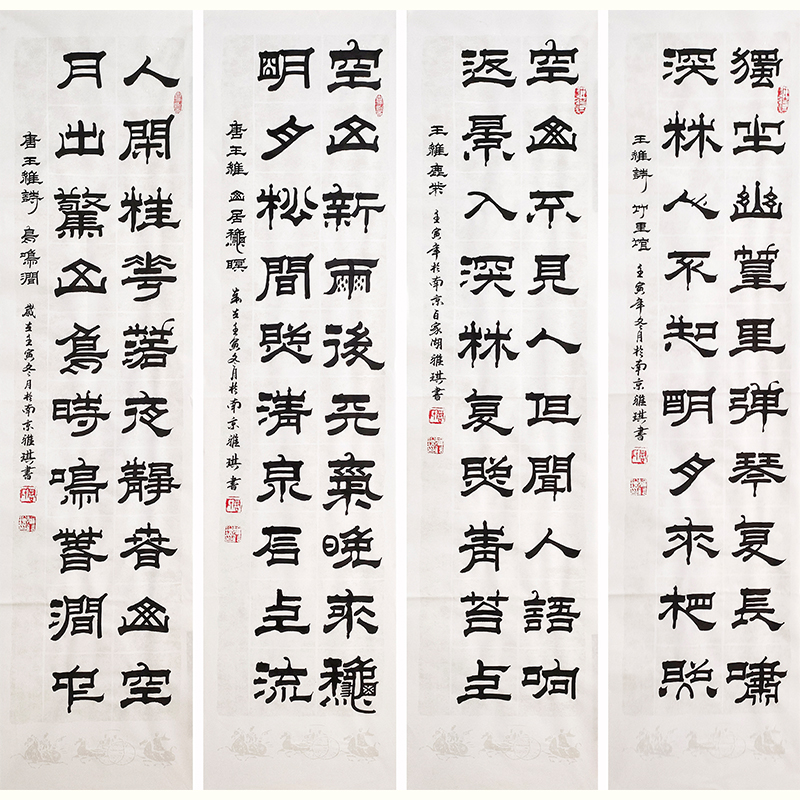 獨坐幽篁里弹琴复長嘯
深林人不知明月来相照
王維詩 竹里馆 壬寅年冬月於南京雅琪書
空山不見人但聞人語响
返景入深林复照青苔上
王維鹿柴 壬寅年於南京百家湖雅琪書
空山新雨後天氣晚来龝
明月松間照清泉石上流
唐王維 山居龝暝 岁在壬寅冬月於南京雅琪書
人閑桂花落夜靜春山空
月出驚山鳥時鳴春澗中
唐王維詩 鳥鳴澗 歲在壬寅冬月於南京雅琪書